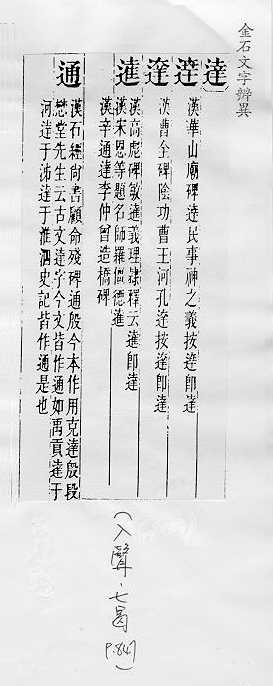 金石文字辨異
達
漢華山廟碑達民事神之義按達即達
迬
漢曹全碑陰功曹王河孔迬按迬即達
漢高彪碑敏進義理隸釋云進即達
漢朱恩等題名師羅僵德進
漢辛通達李仲曾造橋碑
通
漢石經尚書顧命殘碑通殷今本作用克達殷段
懋堂先生云古文達字今文皆作通如禹貢達于
河達于泲達于淮泗史記皆作通是也
(入聲·七曷
P.847)